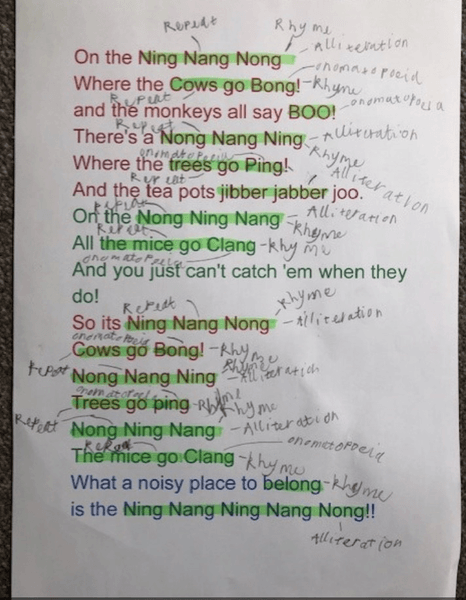 Repeat
Rhyme
On the Ning Nang Nong
Alliteration
onomatopoeid
Where the Cows go Bong! -Rhyme
Repeat
and the monkeys all say BOO! onomatopoeia
Repeat
There's a Nong Nang Ning -Alliteration
Rhyme
onomatopoeia
Where the trees go Ping!
Repeat
Alliteration
And the tea pots jibber jabber joo.
Repeat
On the Nong Ning Nang - Alliteration
-Rhyme
Repeat
All the mice go Clang -Rhyme
onomatopoeia
And you just can't catch 'em when they
do!
Repeat
Rhyme
So its Ning Nang Nong -Alliteration
onomatopoeid
Cows go Bong! -Rhyme
Repeat
Rhyme
Nong Nang Ning -Alliteration
onomatopoeia
Trees go ping -Rhyme
Repeat
Rhyme
Nong Ning Nang -Alliteration
onomatopoeid
The mice go Clang -Rhyme
What a noisy place to belong -Rhyme
is the Ning Nang Ning Nang Nong!!
Alliteration